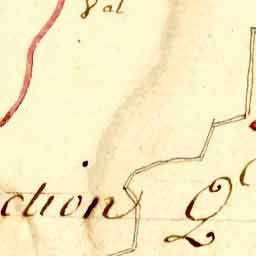 Val
ction Q